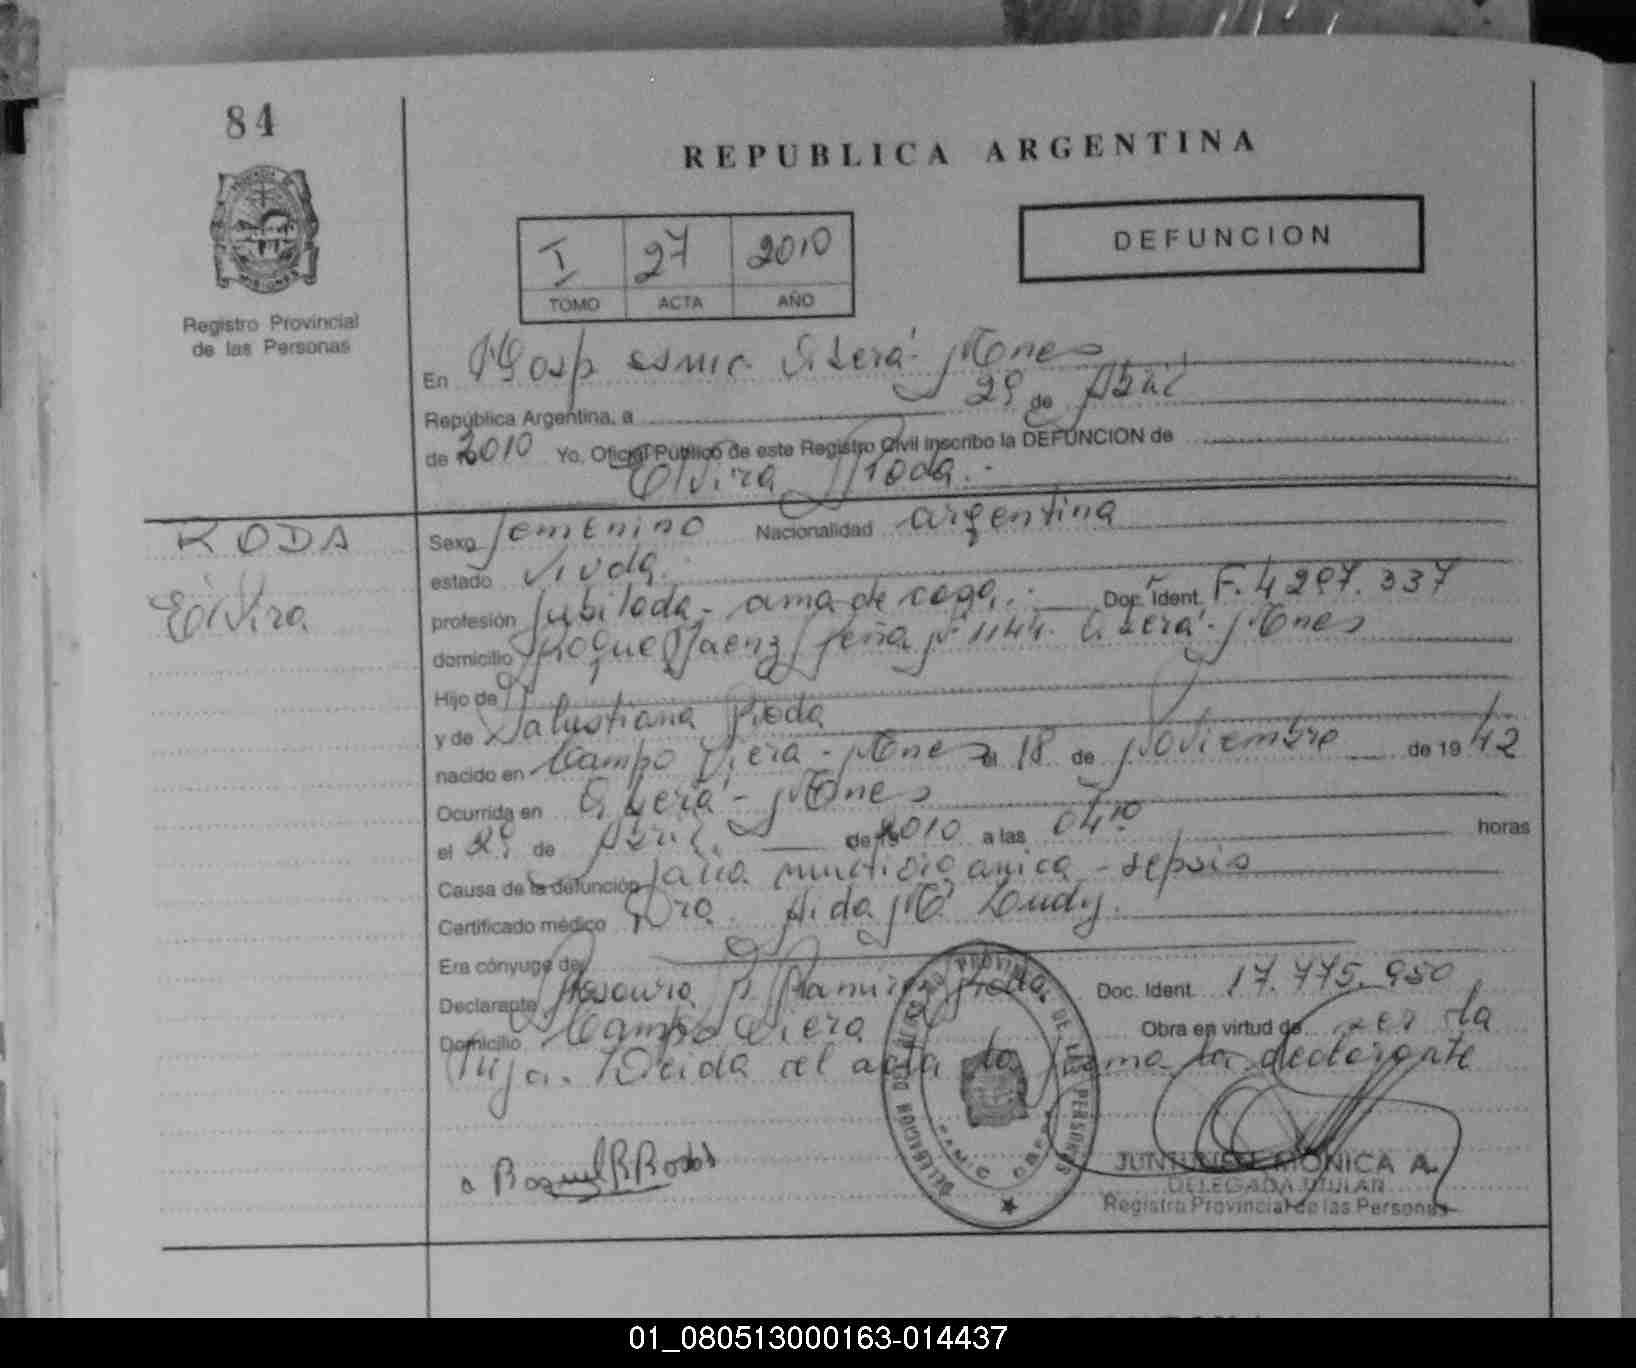 84
REPUBLICA ARGENTINA
DEFUNCION
I 27 2010
TOMO ACTA AÑO
MISIONES
Registro Provincial
de las Personas
En Hosp Oberá Mnes
República Argentina, a 29 de Abril
de 2010 Yo, Oficial Público de este Registro Civil inscribo la DEFUNCION de
Elvira Roda.
RODA
Elvira
Sexo femenino Nacionalidad argentina
estado viuda.
profesión Jubilada - ama de casa. Doc. Ident. F. 4 297.337
domicilio Roque Saenz Peña Nº 1144. Oberá - Mnes
Hijo de
y de Salustiana Roda
nacido en Campo Viera - Mnes el 18 de Noviembre de 19 42
Ocurrida en Oberá - Mnes
el 29 de Abril de 2010 a las 04 10 horas
Causa de la defunción falla multiorganica - sepsis
Certificado médico Dra. Aida
Era cónyuge de
Declarante Ramirez Doc. Ident. 17.775.950
Domicilio Campo Viera Obra en virtud de ser la
hija. Leida el acta la firma la declarante
DELEGACION DEL REGISTRO PROVINCIAL DE LAS PERSONAS
MONICA A.
DELEGADA TITULAR
Registro Provincial de las Personas
01_080513000163-014437